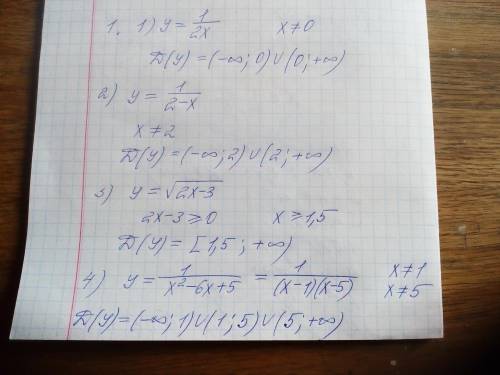 1. 1) y = 1/2x x ≠ 0
Д(y) = (-∞; 0) ∪ (0; +∞)
2) y = 1/2-x
x ≠ 2
Д(y) = (-∞; 2) ∪ (2; +∞)
3) y = √2x-3
2x-3 ⩾ 0 x ⩾ 1,5
Д(y) = [1,5; +∞)
4) y = 1/x²-6x+5 = 1/(x-1)(x-5) x ≠ 1
x ≠ 5
Д(y) = (-∞; 1) ∪ (1; 5) ∪ (5; +∞)